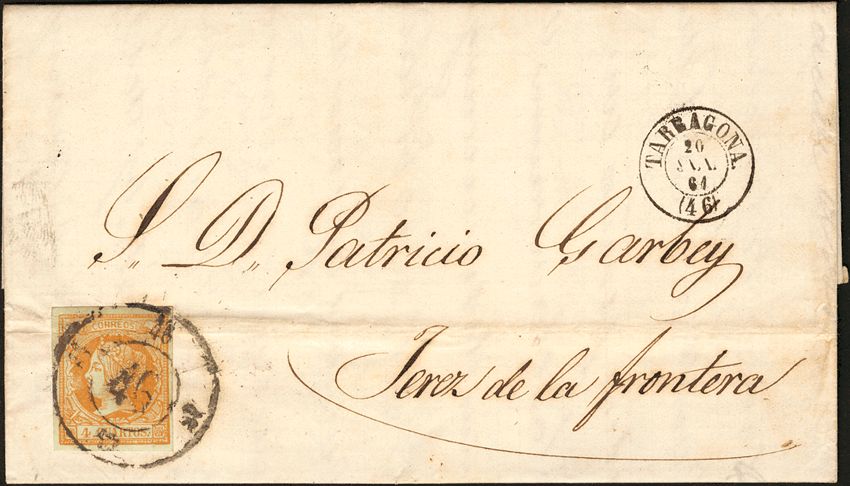 TARRAGONA.
20
61
(46)
S. D. Patricio Garbey
Jerez de la frontera
CORREOS
46
4 CUARTOS.